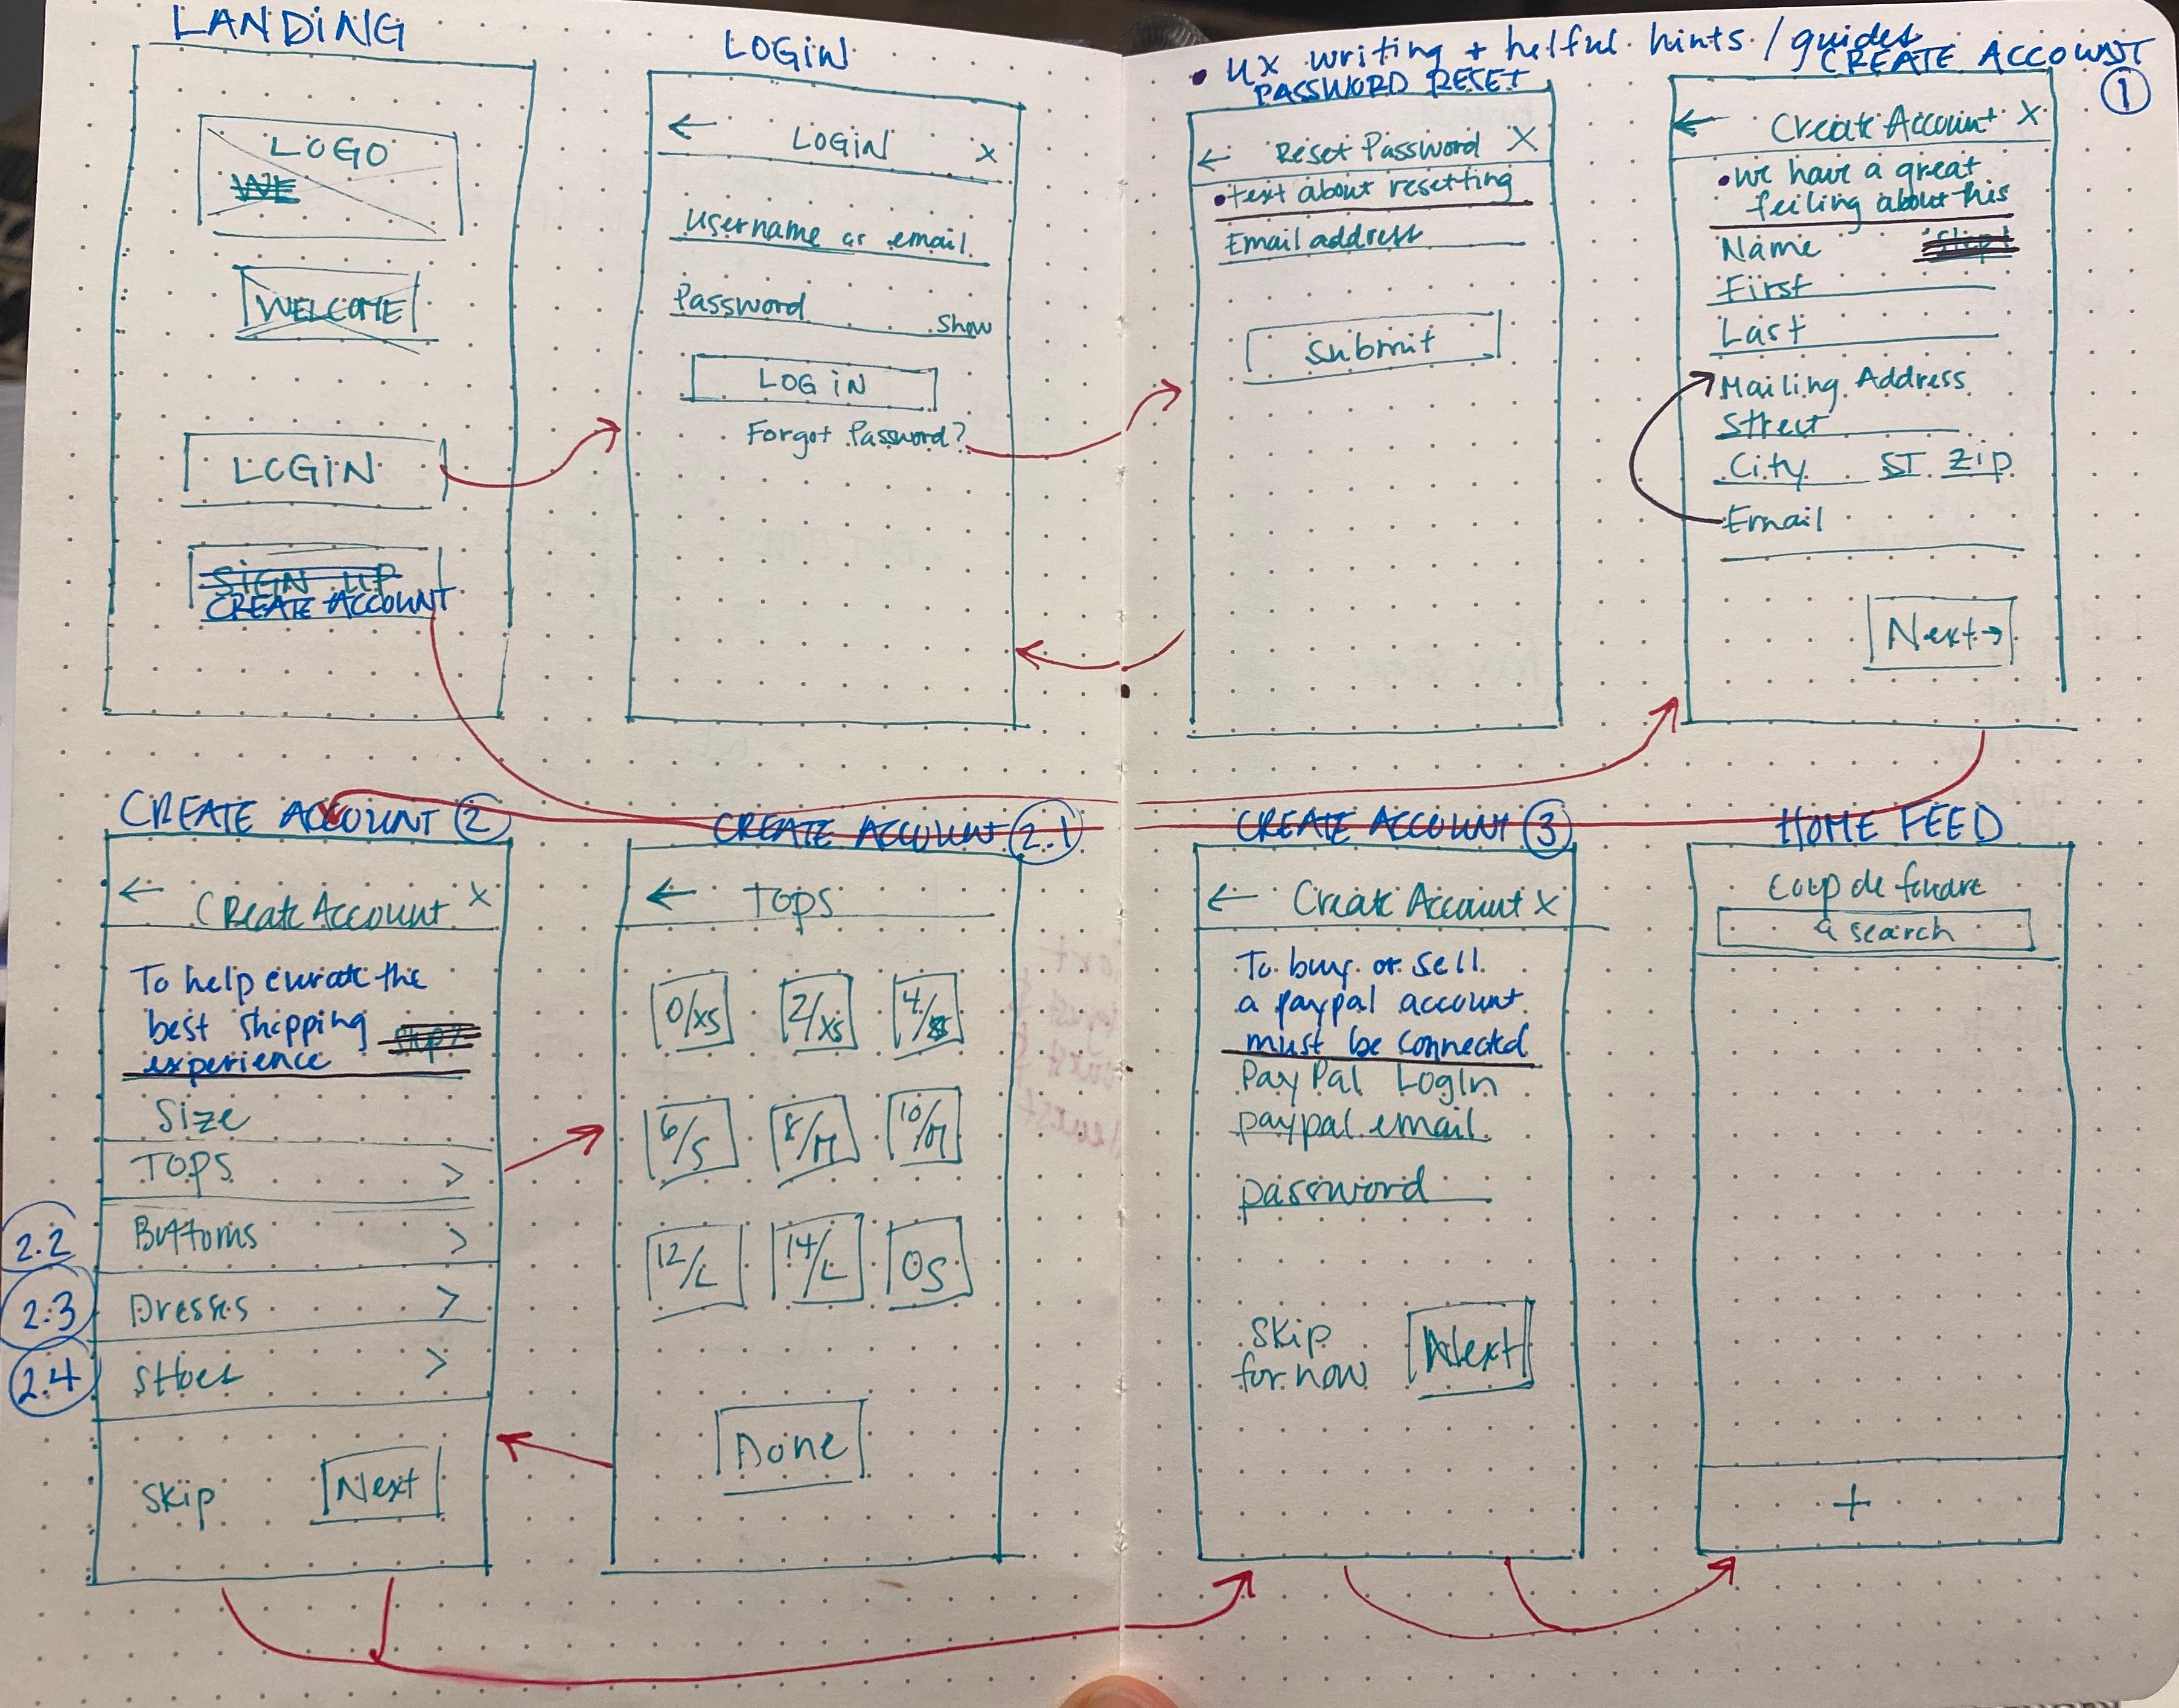 LANDING
LOGO
WE
WELCOME
LOGIN
SIGN UP
CREATE ACCOUNT
LOGIN
← LOGIN X
Username or email
Password Show
LOG IN
Forgot Password?
• UX writing + helful hints / guides
PASSWORD RESET
← Reset Password X
• text about resetting
Email address
Submit
CREATE ACCOUNT
1
← Create Account X
• We have a great
feiling about this
Name Skip?
First
Last
Mailing Address
Street
City ST Zip
Email
Next →
CREATE ACCOUNT 2
← Create Account X
To help curate the
best shipping Skip?
experience
Size
TOPS >
2.2 Buttoms >
2.3 Dresses >
2.4 SHoes >
Skip Next
CREATE ACCOUNT 2.1
← TOPS
0/XS 2/XS 4/S
6/S 8/M 10/M
12/L 14/L OS
Done
CREATE ACCOUNT 3
← Create Account X
To buy or sell
a paypal account
must be connected
PayPal LogIn
paypal email
password
Skip
for now Next
HOME FEED
Coup de foudre
search
+